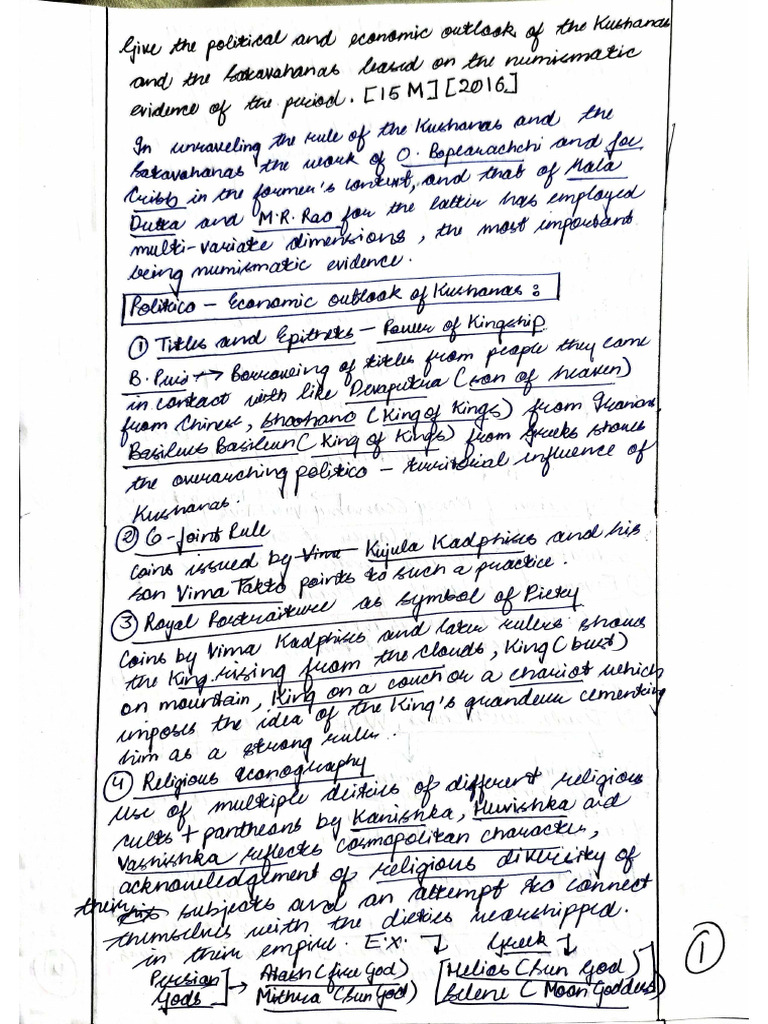 Give the political and economic outlook of the Kushanas
and the Satavahanas based on the numismatic
evidence of the period. [15 M] [2016]
In unraveling the rule of the Kushanas and the
Satavahanas the work of O. Bopearachchi and Joe
Cribb in the former's context, and that of Mala
Dutta and M.R. Rao for the latter has employed
multi-variate dimensions, the most important
being numismatic evidence.
Politico - Economic outlook of Kushanas :
① Titles and Epithets - Power of Kingship
B. Puri → Borrowing of titles from people they came
in contact with like Devaputra (son of heaven)
from Chinese, shaohano (King of Kings) from Iranians
Basileus Basileun (King of Kings) from Greeks shows
the overarching politico - territorial influence of
Kushanas.
② Co-Joint Rule
Coins issued by Vima Kujula Kadphises and his
son Vima Takto points to such a practice.
③ Royal Portraiture as symbol of Piety
Coins by Vima Kadphises and later rulers shows
the King rising from the clouds, King (bust)
on mountain, King on a couch or a chariot which
imposes the idea of the King's grandeur cementing
him as a strong ruler.
④ Religious Iconography
Use of multiple deities of different religious
cults + pantheons by Kanishka, Huvishka and
Vasnishka reflects cosmopolitan character,
acknowledgement of religious diversity of
their subjects and an attempt to connect
themselves with the dieties worshipped
in their empire. Ex. ↓ Greek ↓
Persian Gods → Atash (fire God) [Helios (Sun God)
Mithra (Sun God) Selene (Moon Goddess)]
①